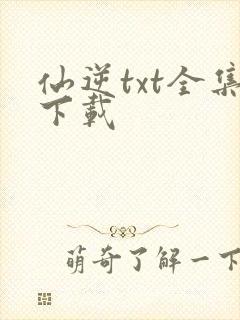 仙逆txt全集
下载
萌奇了解一下